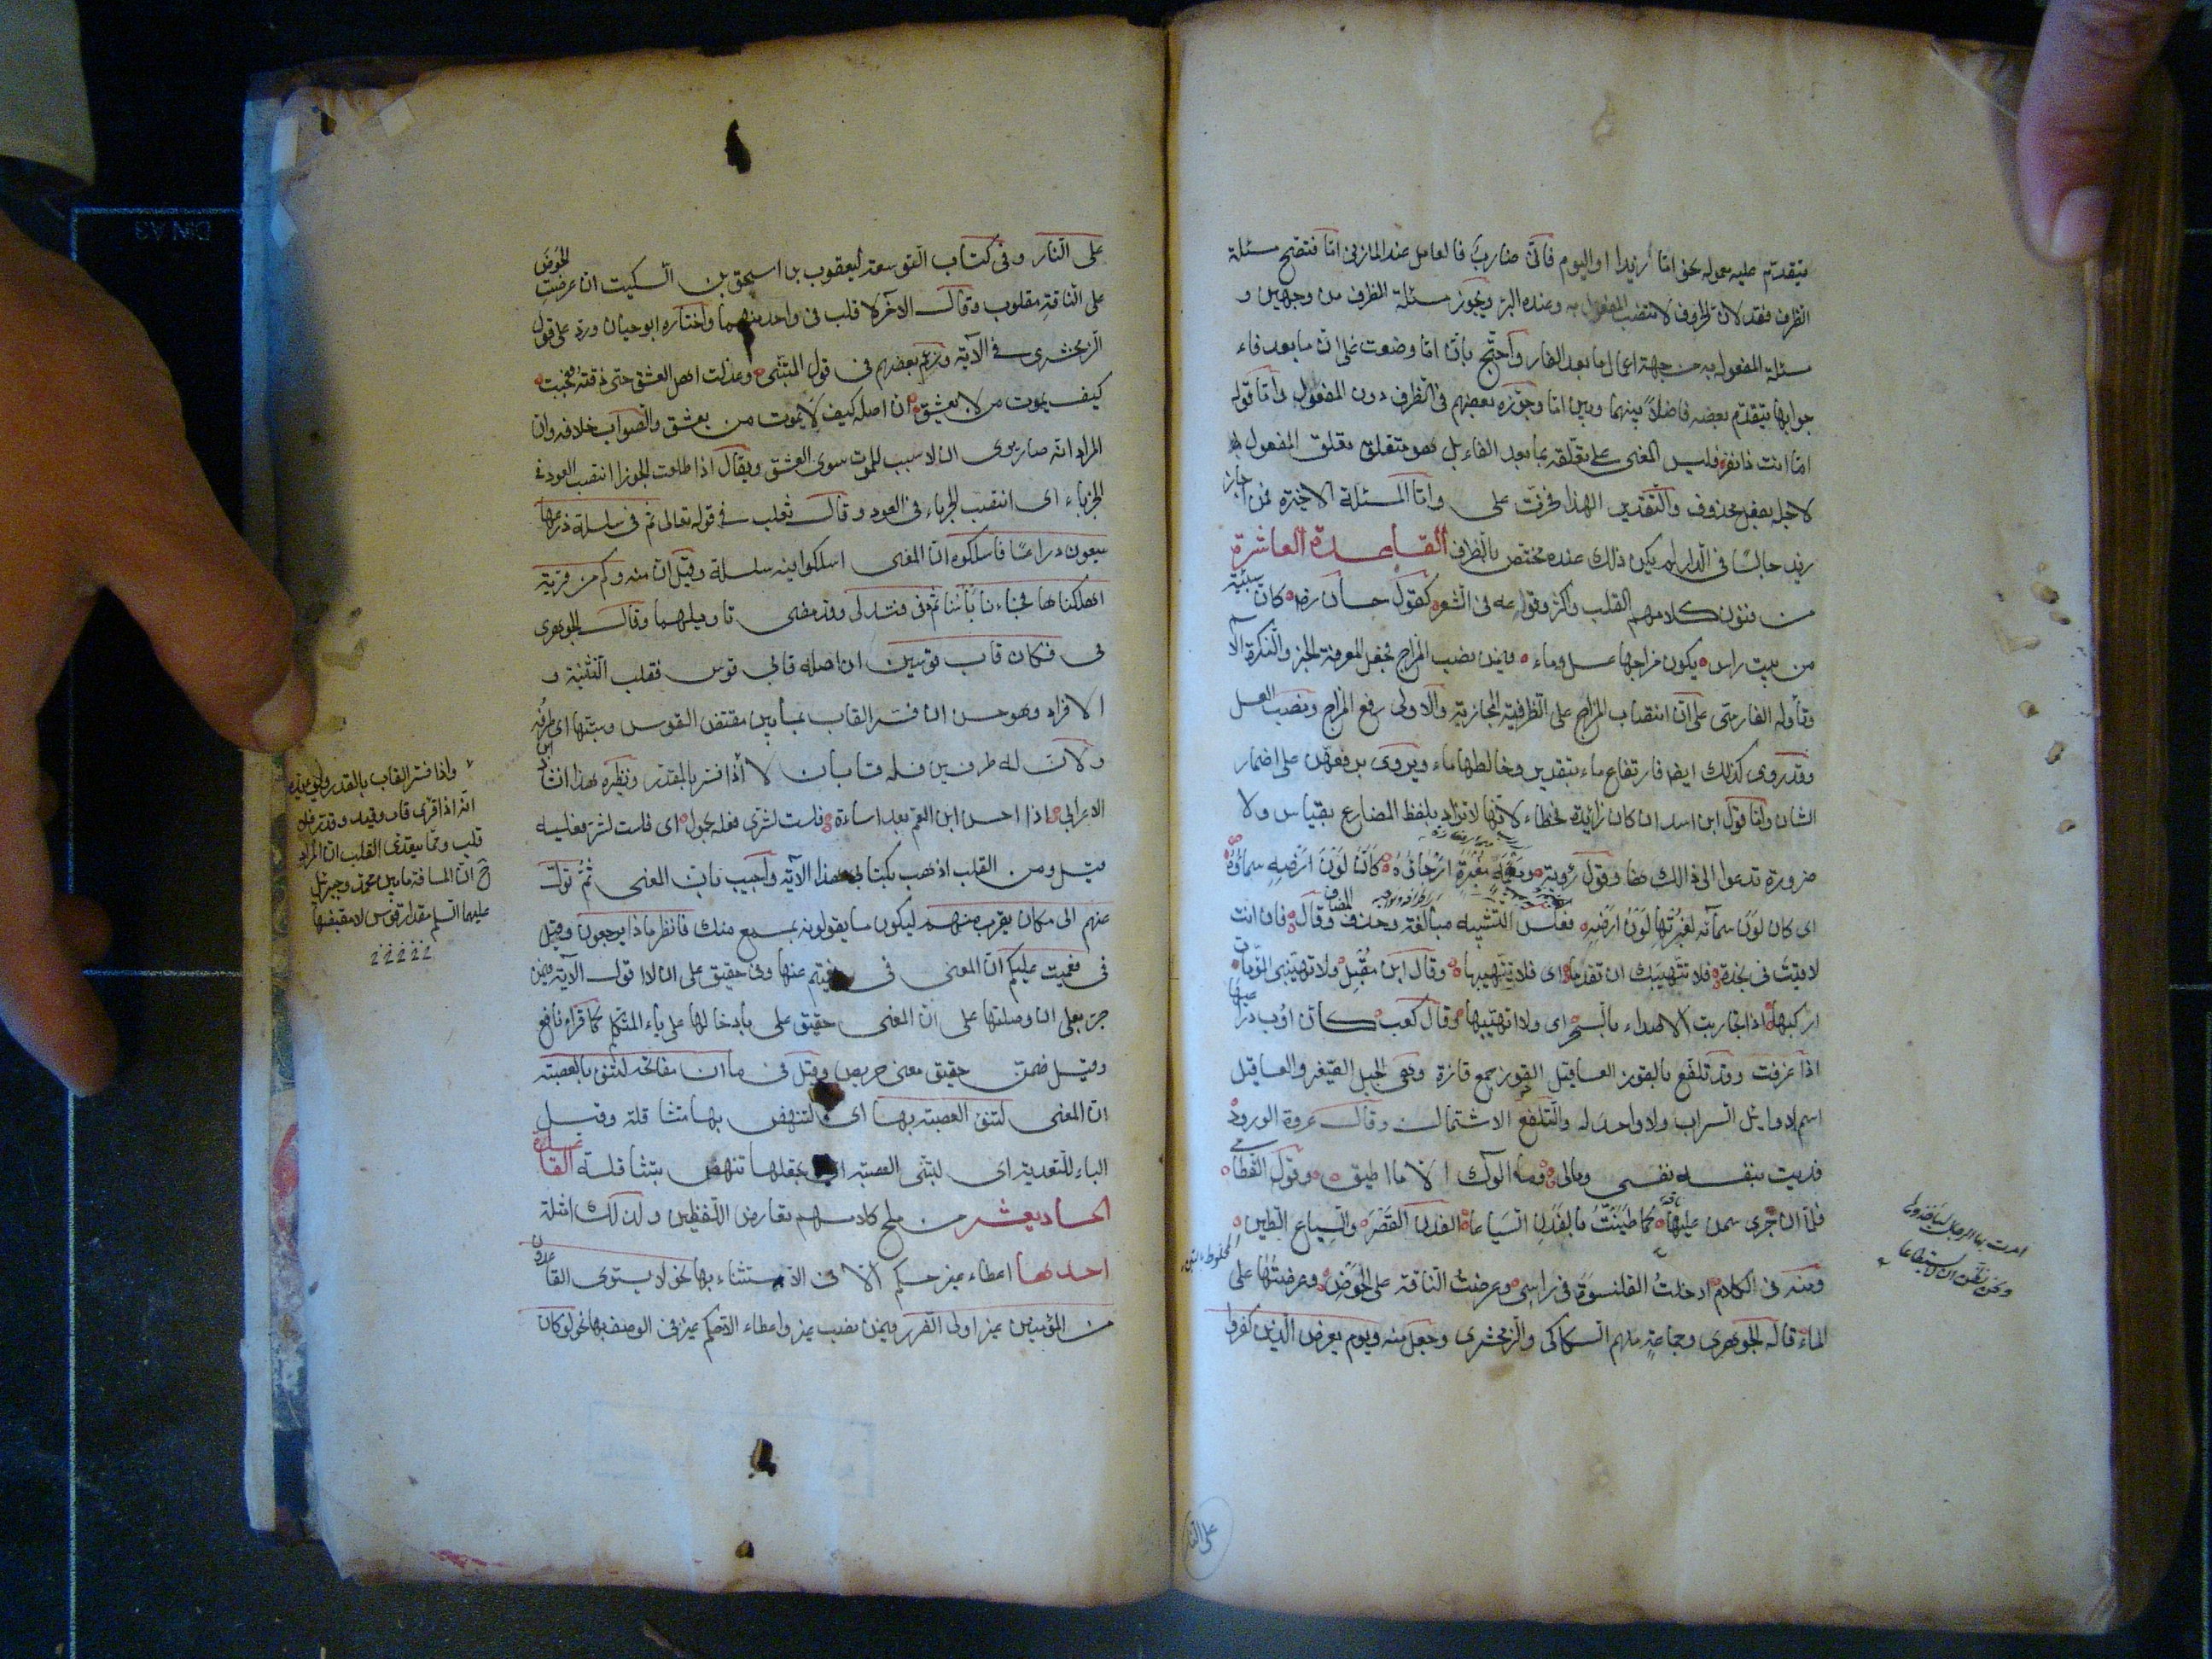 يتقدم عليه معموله نحو اما زيدا او اليوم فاني ضارب فالعامل عند المازني اما فتصح مسئلة
الظرف فقط لان الحروف لا تنصب المفعول به وعند المبرد ويجوز مسئلة الظرف من وجهين و
مسئلة المفعول به من جهة اعمال ما بعد الفاء واحتج بان اما وضعت على ان ما بعد فاء
جوابها يتقدم بعضه فاصلاً بينهما وبين اما وجوزه بعضهم في الظرف دون المفعول واما قوله
اما انت ذا نفر فليس المعنى على تعلقه بما بعد الفاء بل هو متعلق تعلق المفعول
لاجله بفعل محذوف والتقدير الهذا فخرت على واما المسئلة الاخيرة فمن اجاز
زيد جالسًا في الدار لم يكن ذلك عنده مختص بالظرف القاعدة العاشرة
من فنون كلامهم القلب واكثر وقوعه في الشعر كقول حسان رضه كان سبيئة
من بيت راس يكون مزاجها عسل وماء فيمن نصب المزاج فجعل المعرفة الخبر والنكرة الاسم
وتأوله الفارسي على ان انتصاب المزاج على الظرفية المجازية والاولى رفع المزاج ونصب العسل
وقد روي كذلك ايضا فارتفاع ماء بتقدير وخالطها ماء ويروى برفعهن على اضمار
الشان واما قول ابن اسد ان كان زائدة فخطاء لانها لا تزاد بلفظ المضارع بقياس ولا
ضرورة تدعوا الى ذلك هنا وقول رؤبة ومهمه مغبرة ارجاؤه كأن لون ارضه سماؤه
اى كان لون سمآئه لغبرتها لون ارضه فعكس التشبيه مبالغة وحذف المضاف وقال فان انت
لاقيت في نجدة فلا تتهيبك ان تقدما اى فلا تتهيبها وقال ابن مقبل ولا تهيبني الموماة
اركبها اذا تجاوبت الاصداء بالسحر اى ولا اتهيبها وقال كعب كان اوب ذراعيها
اذا عرقت وقد تلفع بالقور العساقيل القور جمع قارة وهي الجبل الصغير والعساقيل
اسم لاوائل السراب ولا واحد له والتلفع الاشتمال وقال عروة الورد
فديت بنفسه نفسي ومالى وما آلوك الا ما اطيق وقول القطامي
فلما ان جرى سمن عليها كما طينت بالفدن السياعا الفدن القصر والسياع الطين
المخلوط بالتبن
ومنه في الكلام ادخلت القلنسوة في راسي وعرضت الناقة على الحوض وعرضتها على
الماء قاله الجوهرى وجماعة منهم السكاكى والزمخشرى وجعل منه ويوم يعرض الذين كفروا
امرت بها الرجال ليأخذوها
ونحن نظن ان لن تستطاعا
على النار
على النار وفى كتاب التوسعة ليعقوب بن اسحق بن السكيت ان عرضت الحوض
على الناقة مقلوب وقال الآخر لا قلب في واحد منهما واختاره ابو حيان ورد على قول
الزمخشرى في الآية وزعم بعضهم في قول المتنبى وعذلت اهل العشق حتى ذقته فعجبت
كيف يموت من لا يعشق ان اصله كيف لا يموت من يعشق والصواب خلافه وان
المراد انه صار يرى ان لا سبب للموت سوى العشق ويقال اذا طلعت الجوزا انتصب العود في
الحرباء اى انتصب الحرباء في العود وقال ثعلب في قوله تعالى ثم في سلسلة ذرعها
سبعون ذراعًا فاسلكوه ان المعنى اسلكوا فيه سلسلة وقيل ان منه وكم من قرية
اهلكناها فجاءنا بأسنا ثم دنى فتدلى وقد مضى تاويلهما وقال الجوهرى
في فكان قاب قوسين ان اصله قابي قوس فقلب التثنية و
الافراد وهو حسن ان فسر القاب بما بين مقتض القوس وسيتها اى طرفه
ولان له طرفين فله قابان لا اذا فسر بالمقدر ونظيره هذا انشاد ابن
الاعرابي اذا احسن ابن العم بعد اساءة فلست لشرى فعله بحمول اى فلست لشر فعليه
قيل ومن القلب اذهب بكتابي هذا الآية واجيب بان المعنى ثم تول
عنهم الى مكان يقرب منهم ليكون ما يقولونه بمسمع منك فانظر ماذا يرجعون وقيل
في فعميت عليكم ان المعنى فعميتم عنها وفى حقيق على ان لا اقول الآية فيمن
جر بعلى ان وصلتها على ان المعنى حقيق على بادخالها على ياء المتكلم كما قراء نافع
وقيل ضمن حقيق معنى حريص وقيل فى ما ان مفاتحه لتنوء بالعصبة
ان المعنى لتنوء العصبة بها اى لتنهض بها متثاقلة وقيل
الباء للتعدية اى لتنئ العصبة اى تجعلها تنهض متثاقلة القاعدة
الحادي عشر من ملح كلامهم تقارض اللفظين ولذلك امثلة
احدها اعطاء غير حكم الا فى الاستثناء بها نحو لا يستوى القاعدون
من المؤمنين غير اولى الضرر فيمن نصب غير واعطاء الا حكم غير فى الوصف بها نحو لو كان
واذا فسر القاب بالقدر
انه اذا قرى قاد وقيد وقدر فلا
قلب ومما يبعد في القلب ان المراد
ح ان المسافة ما بين محمد وجبرئيل
عليهما السلم مقدار قوس لا مقبضها